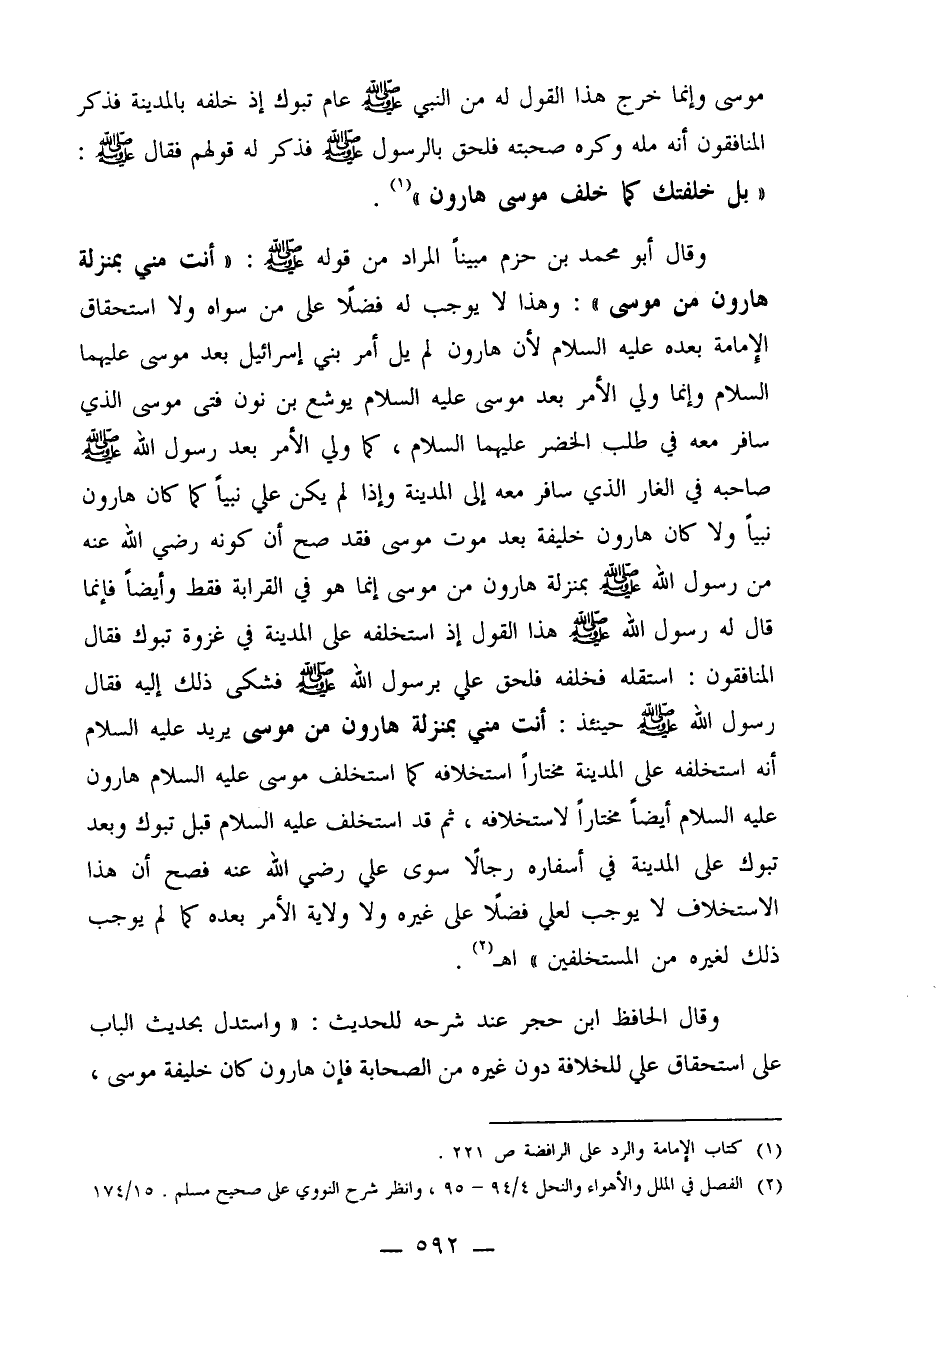 موسى وإنما خرج هذا القول له من النبي ﷺ عام تبوك إذ خلفه بالمدينة فذكر
المنافقون أنه مله وكره صحبته فلحق بالرسول ﷺ فذكر له قولهم فقال ﷺ :
« بل خلفتك كما خلف موسى هارون »(١) .
وقال أبو محمد بن حزم مبيناً المراد من قوله ﷺ : « أنت مني بمنزلة
هارون من موسى » : وهذا لا يوجب له فضلًا على من سواه ولا استحقاق
الإمامة بعده عليه السلام لأن هارون لم يل أمر بني إسرائيل بعد موسى عليهما
السلام وإنما ولي الأمر بعد موسى عليه السلام يوشع بن نون فتى موسى الذي
سافر معه في طلب الخضر عليهما السلام ، كما ولي الأمر بعد رسول الله ﷺ
صاحبه في الغار الذي سافر معه إلى المدينة وإذا لم يكن علي نبياً كما كان هارون
نبياً ولا كان هارون خليفة بعد موت موسى فقد صح أن كونه رضي الله عنه
من رسول الله ﷺ بمنزلة هارون من موسى إنما هو في القرابة فقط وأيضاً فإنما
قال له رسول الله ﷺ هذا القول إذ استخلفه على المدينة في غزوة تبوك فقال
المنافقون : استقله فخلفه فلحق علي برسول الله ﷺ فشكى ذلك إليه فقال
رسول الله ﷺ حينئذ : أنت مني بمنزلة هارون من موسى يريد عليه السلام
أنه استخلفه على المدينة مختاراً استخلافه كما استخلف موسى عليه السلام هارون
عليه السلام أيضاً مختاراً لاستخلافه ، ثم قد استخلف عليه السلام قبل تبوك وبعد
تبوك على المدينة في أسفاره رجالًا سوى علي رضي الله عنه فصح أن هذا
الاستخلاف لا يوجب لعلي فضلًا على غيره ولا ولاية الأمر بعده كما لم يوجب
ذلك لغيره من المستخلفين » اهـ(٢) .
وقال الحافظ ابن حجر عند شرحه للحديث : « واستدل بحديث الباب
على استحقاق علي للخلافة دون غيره من الصحابة فإن هارون كان خليفة موسى ،
(١) كتاب الإمامة والرد على الرافضة ص ٢٢١ .
(٢) الفصل في الملل والأهواء والنحل ٩٤/٤ – ٩٥ ، وانظر شرح النووي على صحيح مسلم . ١٧٤/١٥
— ٥٩٢ —